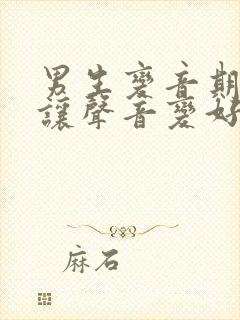 男生變音期
讓聲音變好
麻石